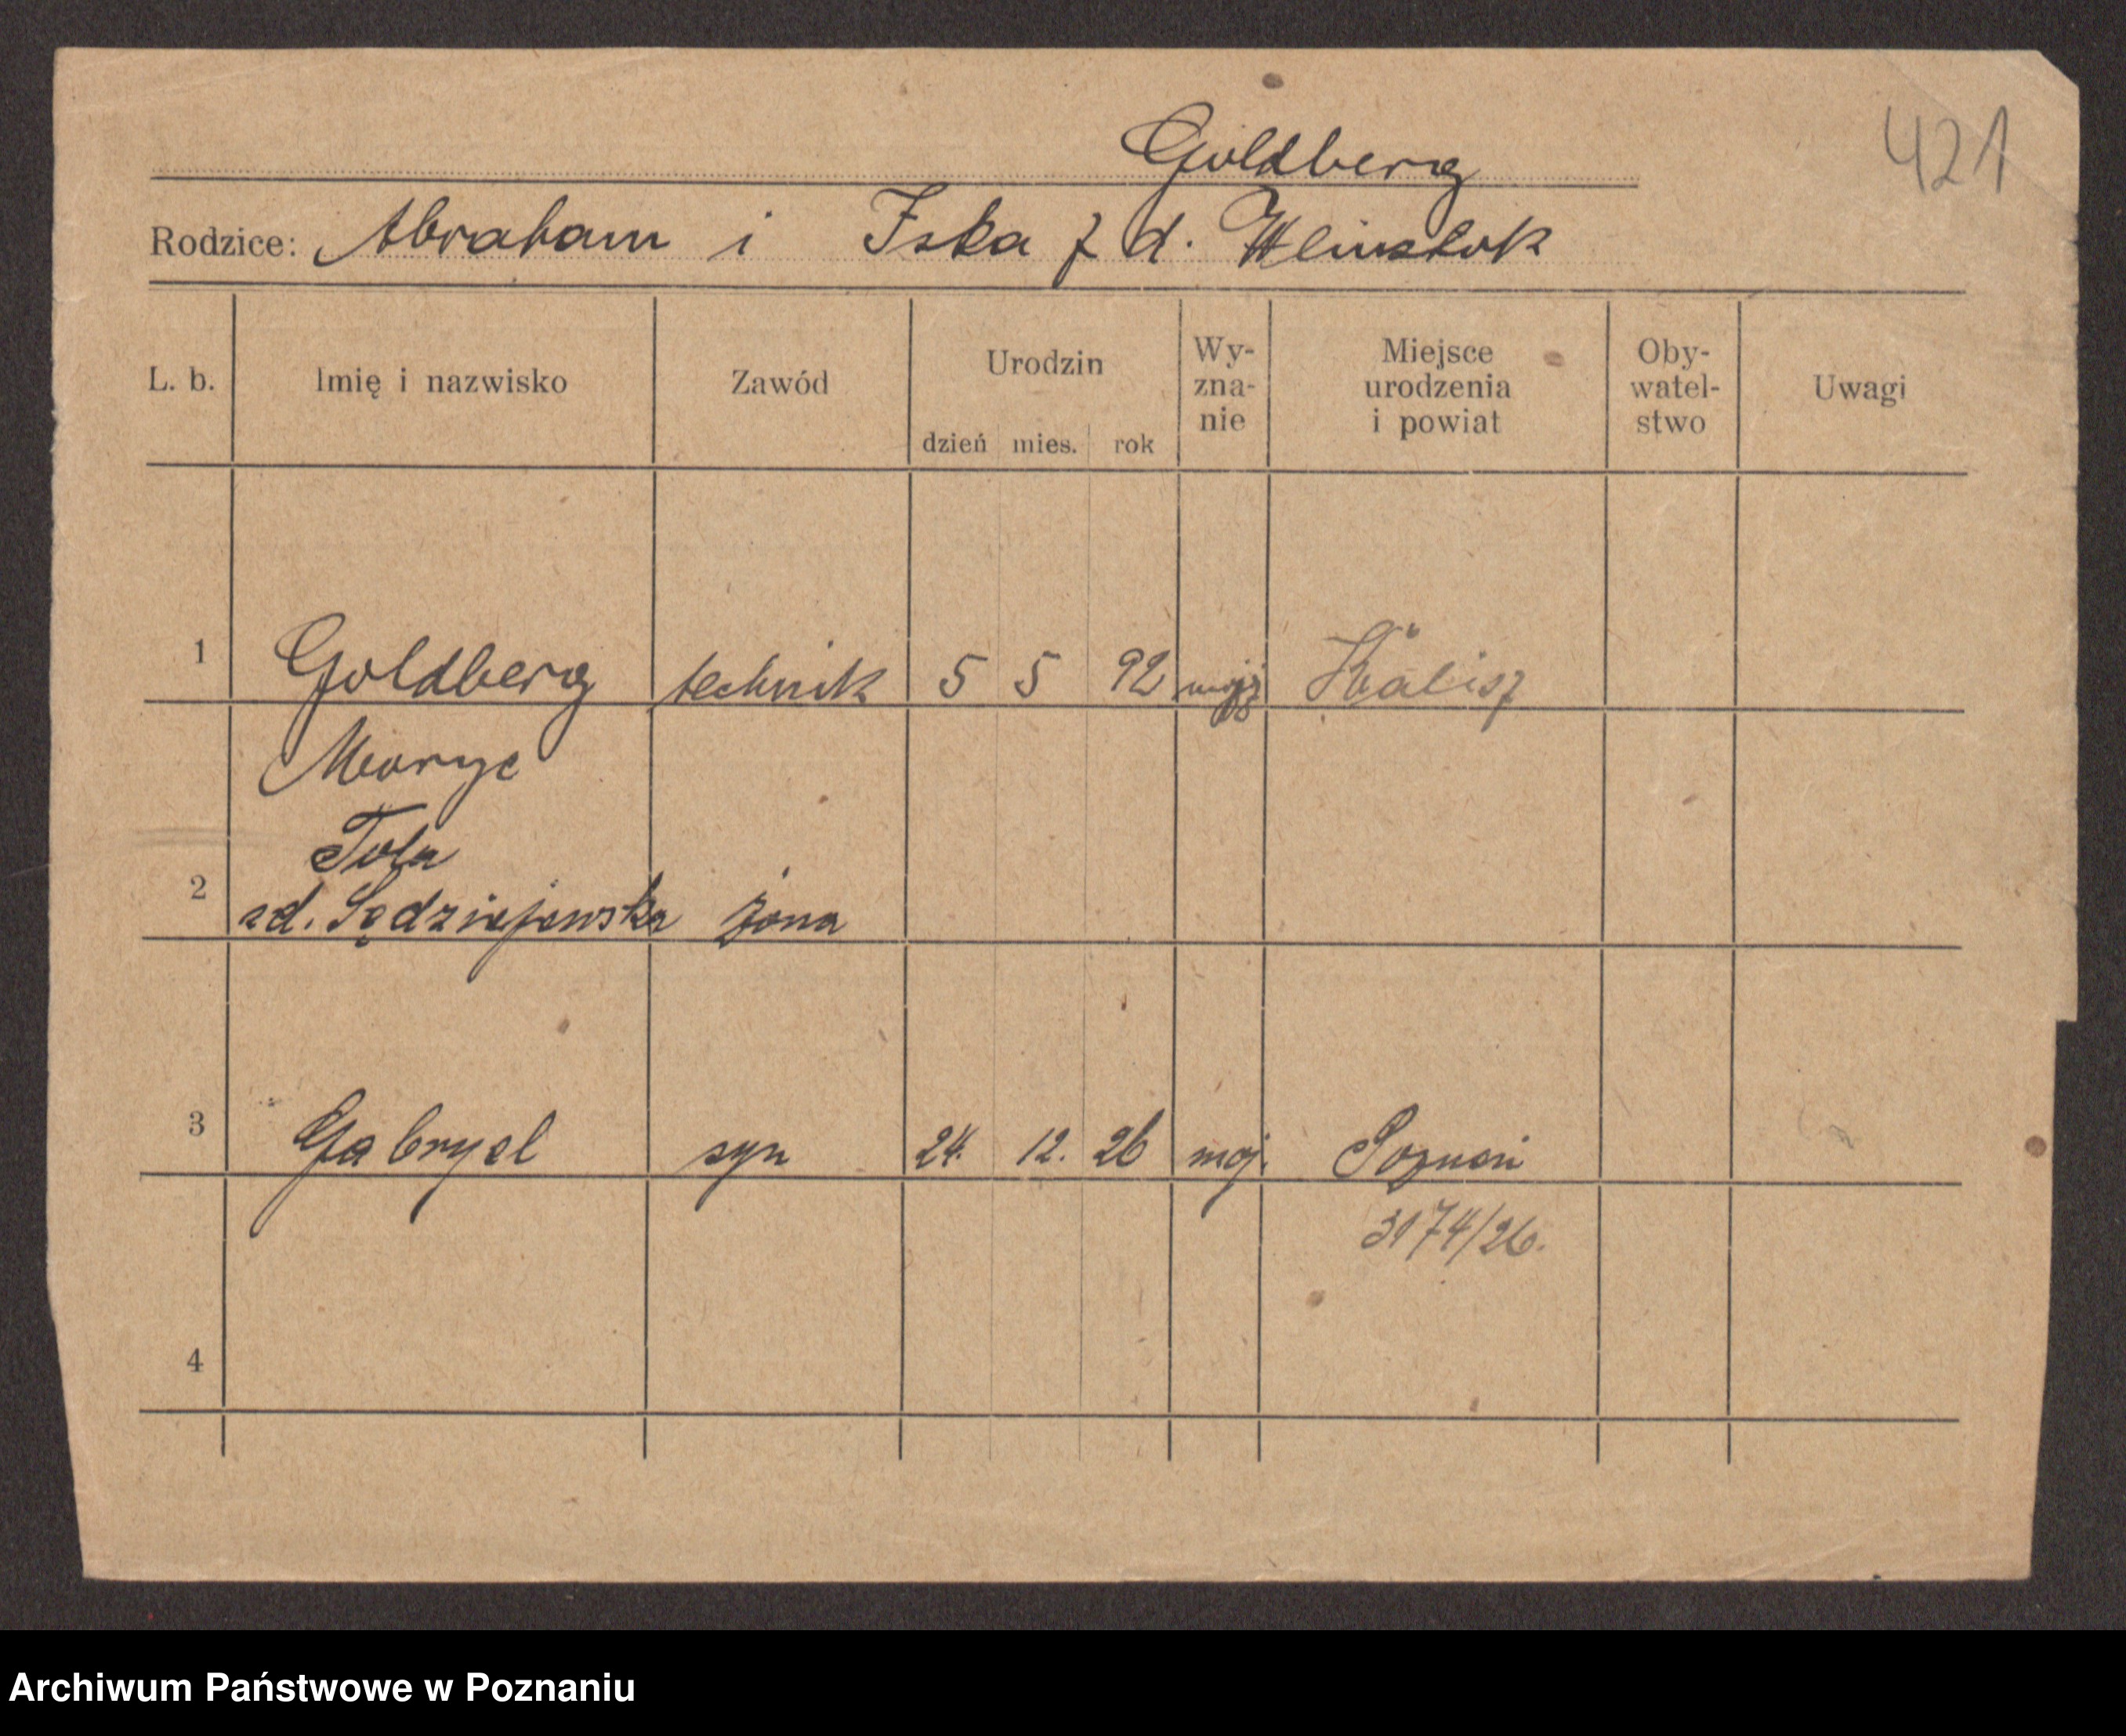 421
Goldberg
Rodzice: Abraham i Iska z d.
L. b. Imię i nazwisko Zawód Urodzin dzień mies. rok Wy-zna-nie Miejsce urodzenia i powiat Oby-watel-stwo Uwagi
1 Goldberg technik 5 5 92 mojż Kalisz
Moryc
Tola
2 zd. Sędziejewska żona
3 Gabryel syn 24. 12. 26 moj. Poznań
3174/26.
4
Archiwum Państwowe w Poznaniu